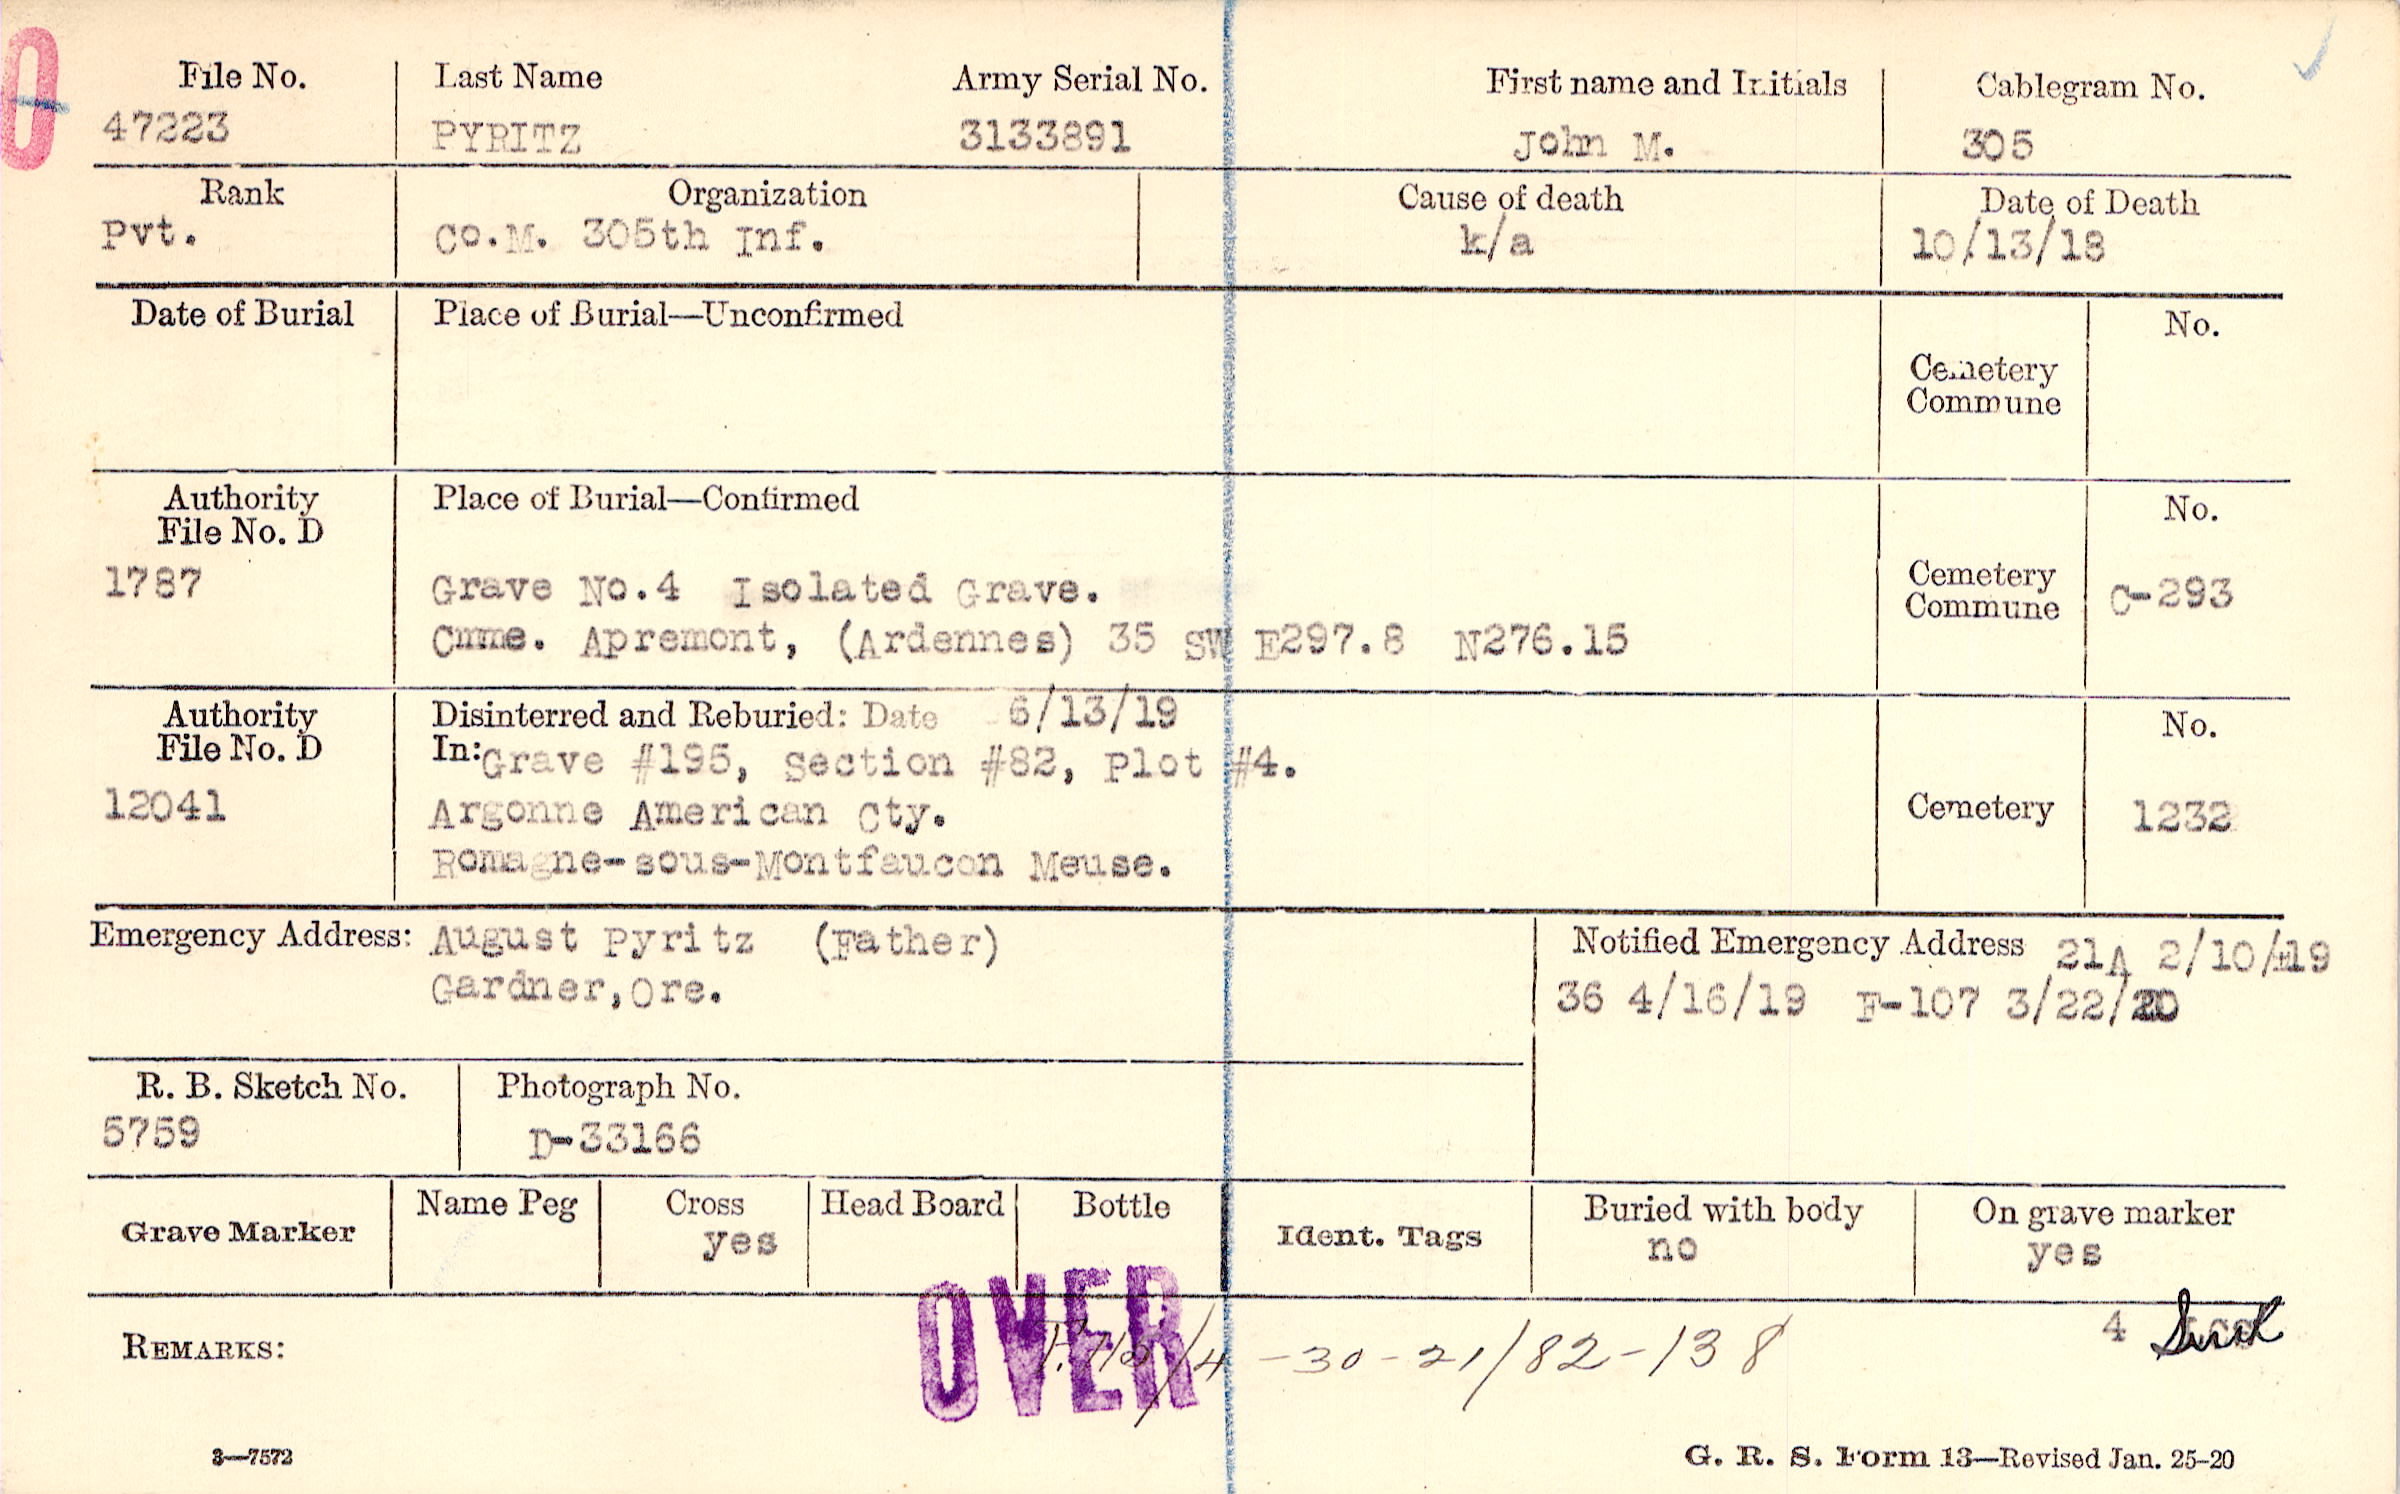 File No. Last Name Army Serial No. First name and Initials Cablegram No.
47223 PYRITZ 3133891 John M. 305
Rank Organization Cause of death Date of Death
Pvt. Co.M. 305th Inf. k/a 10/13/18
Date of Burial Place of Burial—Unconfirmed No.
Cemetery
Commune
Authority Place of Burial—Confirmed No.
File No. D
1787 Grave No.4 Isolated Grave. Cemetery
Commune C-293
Cmme. Apremont, (Ardennes) 35 SW E297.8 N276.15
Authority Disinterred and Reburied: Date 6/13/19 No.
File No. D In: Grave #195, Section #82, Plot #4.
12041 Argonne American Cty. Cemetery 1232
Romagne-sous-Montfaucon Meuse.
Emergency Address: August Pyritz (Father)
Gardner, Ore.
Notified Emergency Address 21A 2/10/19
36 4/16/19 F-107 3/22/20
R. B. Sketch No. Photograph No.
5759 D-33166
Grave Marker Name Peg Cross Head Board Bottle Ident. Tags Buried with body On grave marker
yes no yes
REMARKS: OVER /4-30-21/82-138 4
3—7572 G. R. S. Form 13—Revised Jan. 25-20